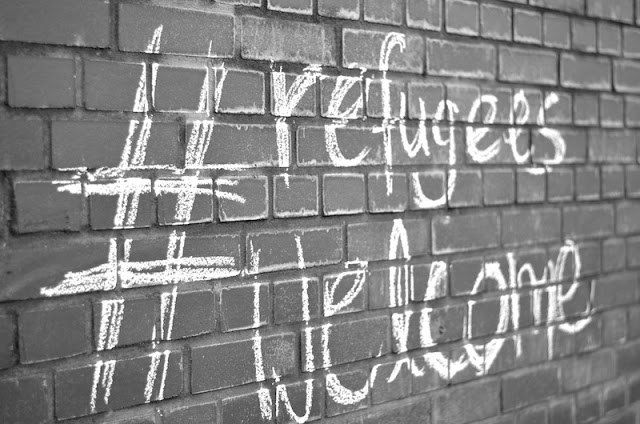 #refugees
welcome